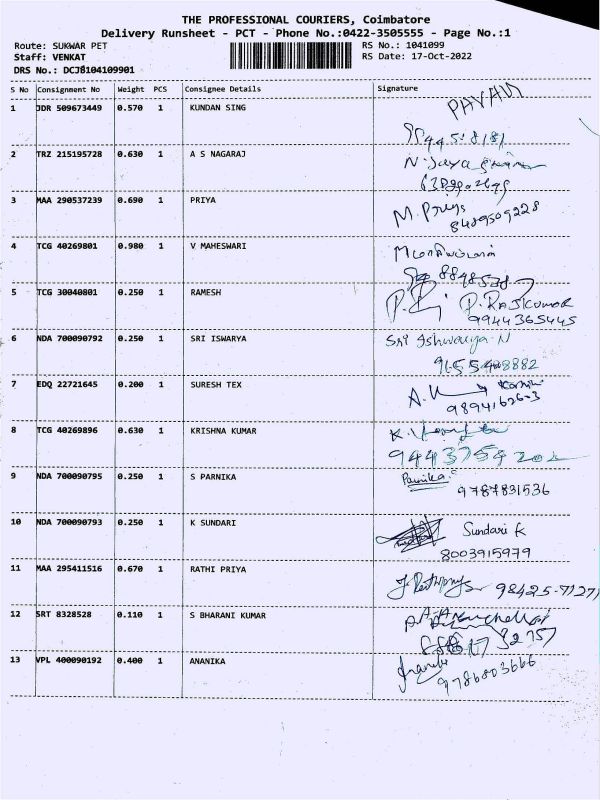 THE PROFESSIONAL COURIERS, Coimbatore
Delivery Runsheet - PCT - Phone No.:0422-3505555 - Page No.:1
Route: SUKWAR PET RS No.: 1041099
Staff: VENKAT RS Date: 17-Oct-2022
DRS No.: DCJ8104109901
S No Consignment No Weight PCS Consignee Details Signature
1 JDR 509673449 0.570 1 KUNDAN SING PAVAN
2 TRZ 215195728 0.630 1 A S NAGARAJ
3 MAA 290537239 0.690 1 PRIYA M. Priya
8489509228
4 TCG 40269801 0.980 1 V MAHESWARI
5 TCG 30040801 0.250 1 RAMESH P. RAJKUMAR
9944365445
6 NDA 700090792 0.250 1 SRI ISWARYA Sri Ishwarya N
7 EDQ 22721645 0.200 1 SURESH TEX
8 TCG 40269896 0.630 1 KRISHNA KUMAR
9 NDA 700090795 0.250 1 S PARNIKA Parnika.S
9787831536
10 NDA 700090793 0.250 1 K SUNDARI Sundari K
8003915979
11 MAA 295411516 0.670 1 RATHI PRIYA
12 SRT 8328528 0.110 1 S BHARANI KUMAR
13 VPL 400090192 0.400 1 ANANIKA
9786803666